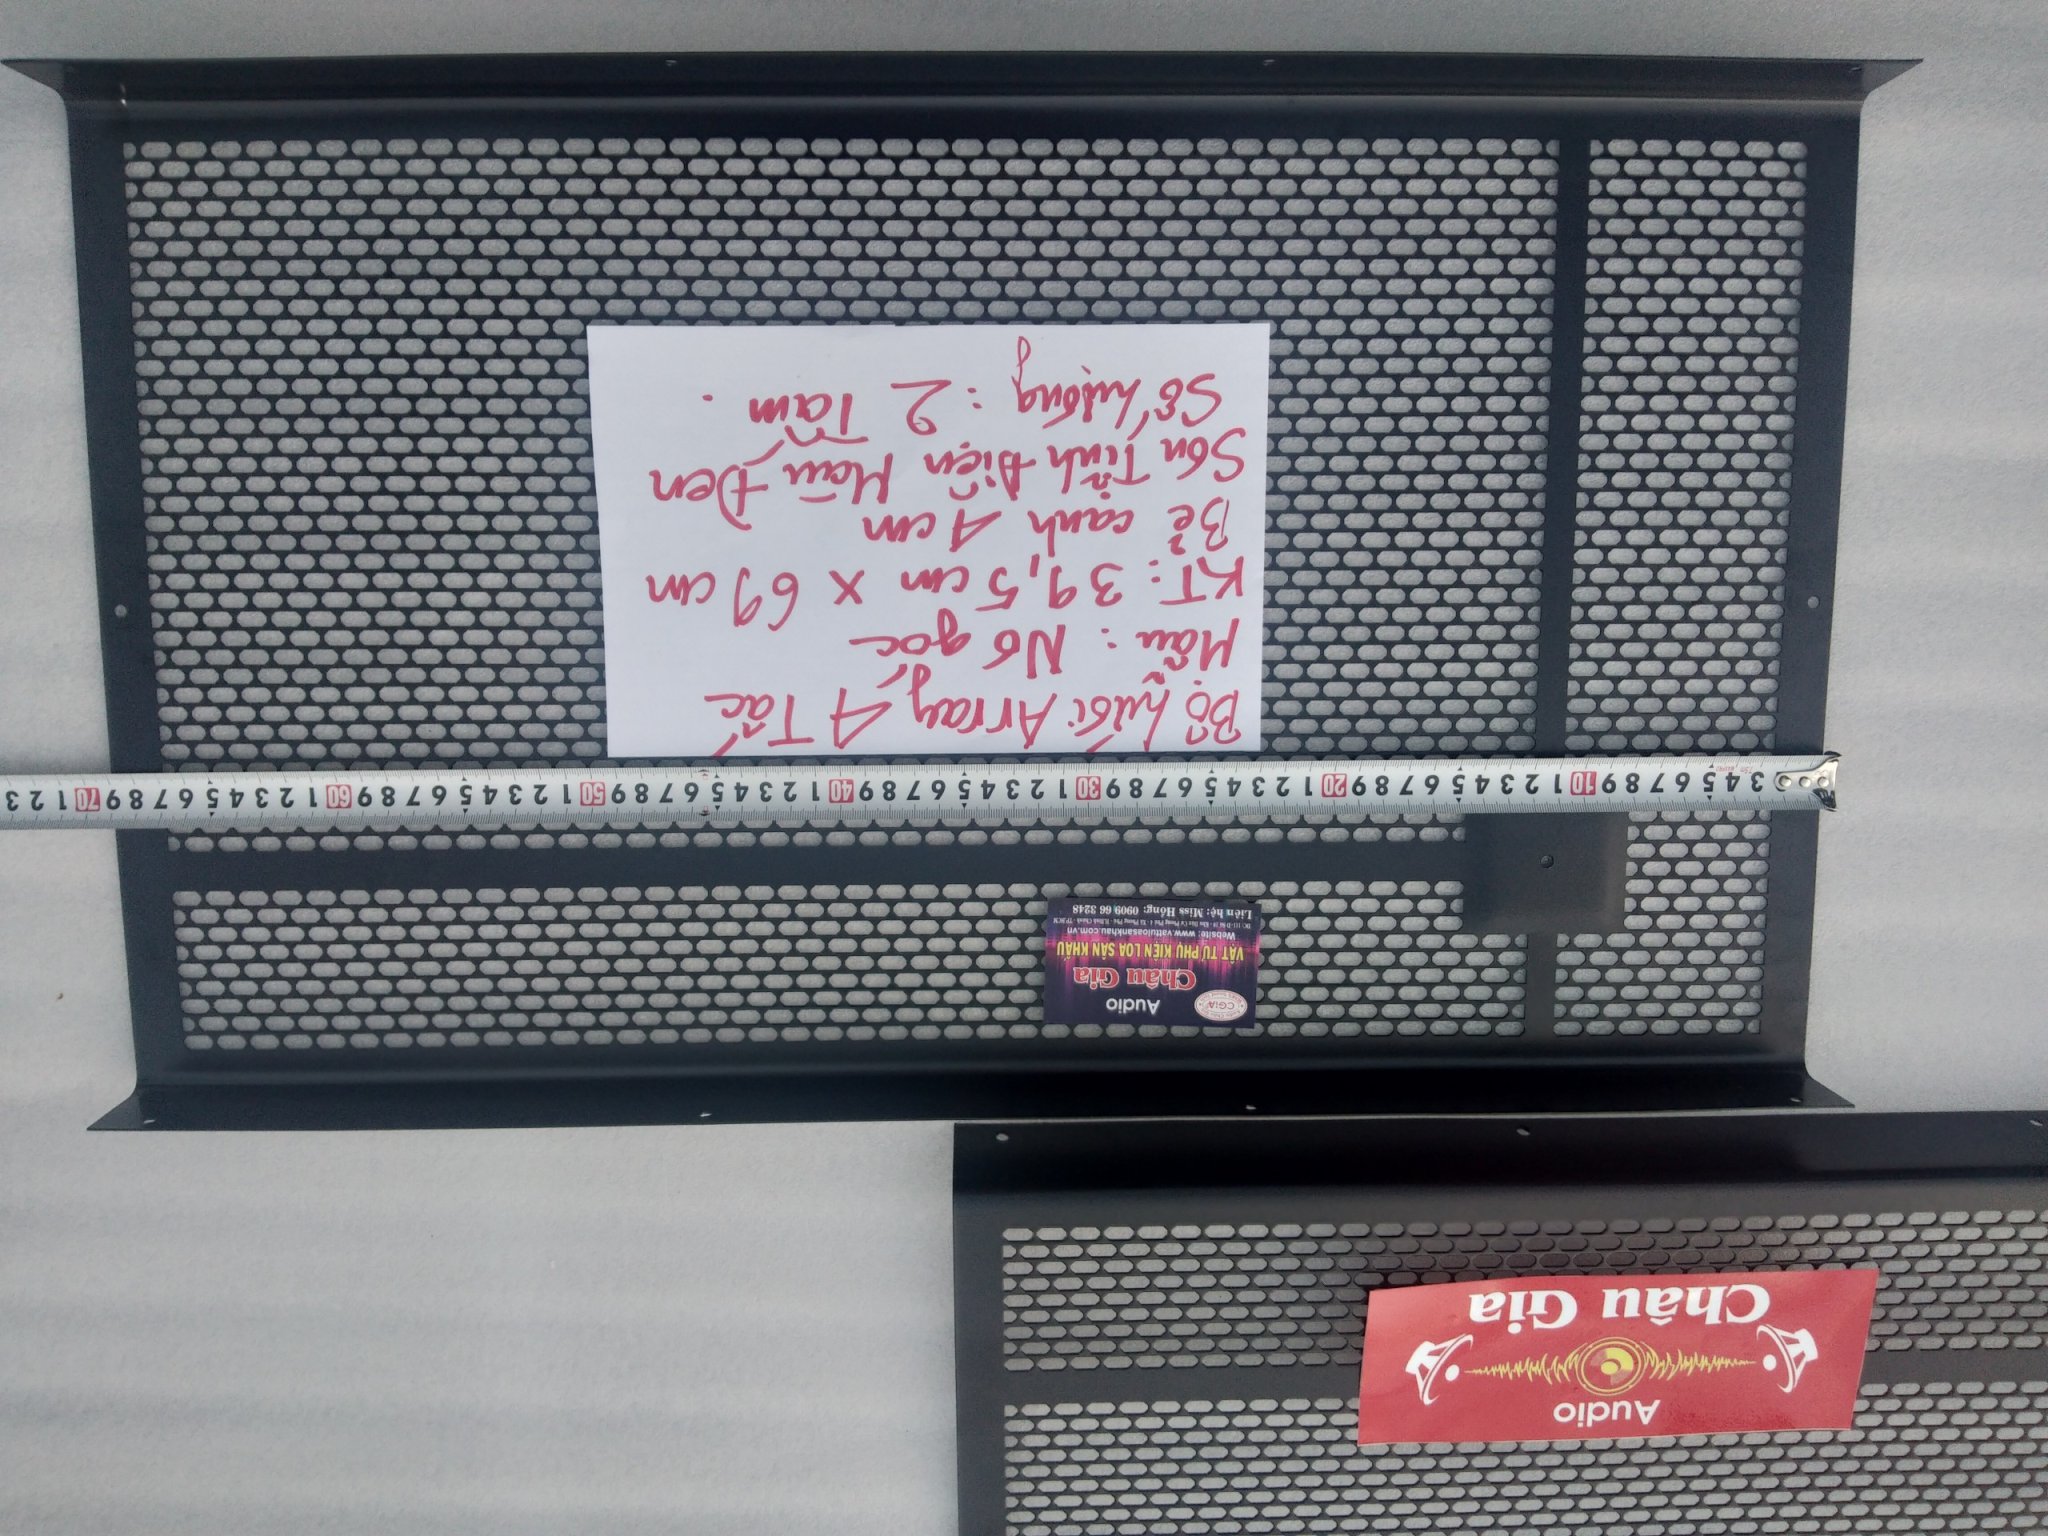 Bộ lưới Array 4 Tấc
Mẫu: No góc
KT: 39,5 cm x 69 cm
Bẻ cạnh 4 cm
Sơn Tĩnh Điện Màu Đen
Số lượng: 2 Tấm.
3 4 5 6 7 8 9 10 1 2 3 4 5 6 7 8 9 20 1 2 3 4 5 6 7 8 9 30 1 2 3 4 5 6 7 8 9 40 1 2 3 4 5 6 7 8 9 50 1 2 3 4 5 6 7 8 9 60 1 2 3 4 5 6 7 8 9 70 1 2 3
CGIA
Audio
Châu Gia
VẬT TƯ PHỤ KIỆN LOA SÂN KHẤU
Website: www.vattuloasankhau.com.vn
Liên hệ: Miss Hồng: 0909 66 3248
Audio
Châu Gia